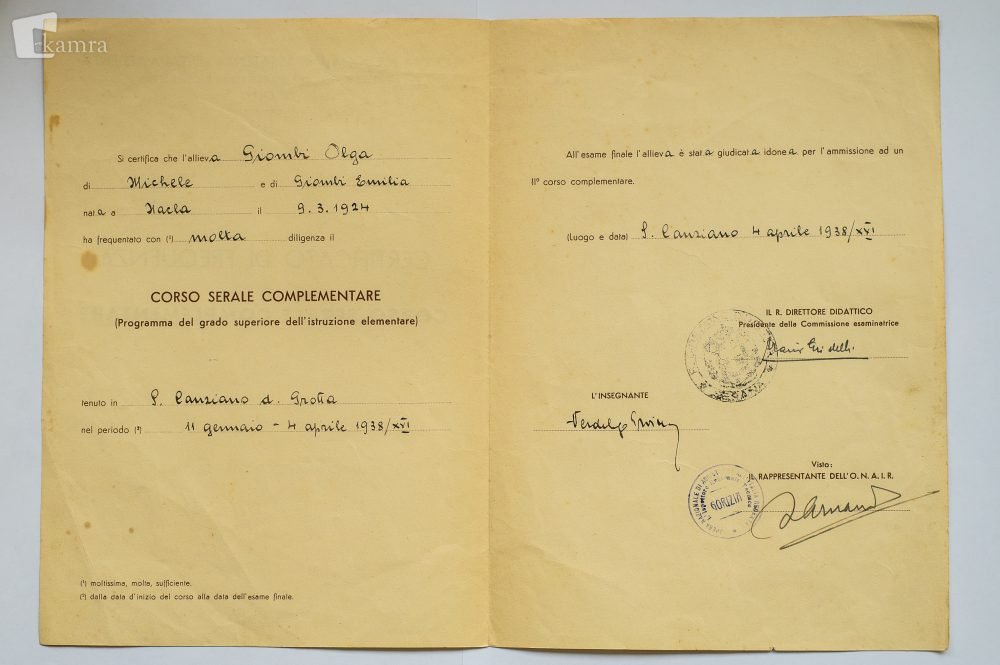 kamra
Si certifica che l'allieva Giombi Olga
di Michele e di Giombi Emilia
nata a Nacla il 9.3.1924
ha frequentato con (¹) molta diligenza il
CORSO SERALE COMPLEMENTARE
(Programma del grado superiore dell'istruzione elementare)
tenuto in S. Canziano d. Grotta
nel periodo (²) 11 gennaio - 4 aprile 1938/XVI
(¹) moltissima, molta, sufficiente.
(²) dalla data d'inizio del corso alla data dell'esame finale.
All'esame finale l'allieva è stata giudicata idonea per l'ammissione ad un
IIº corso complementare.
(Luogo e data) S. Canziano 4 aprile 1938/XVI
IL R. DIRETTORE DIDATTICO
Presidente della Commissione esaminatrice
L'INSEGNANTE
Visto:
IL RAPPRESENTANTE DELL'O.N.A.I.R.
GORIZIA